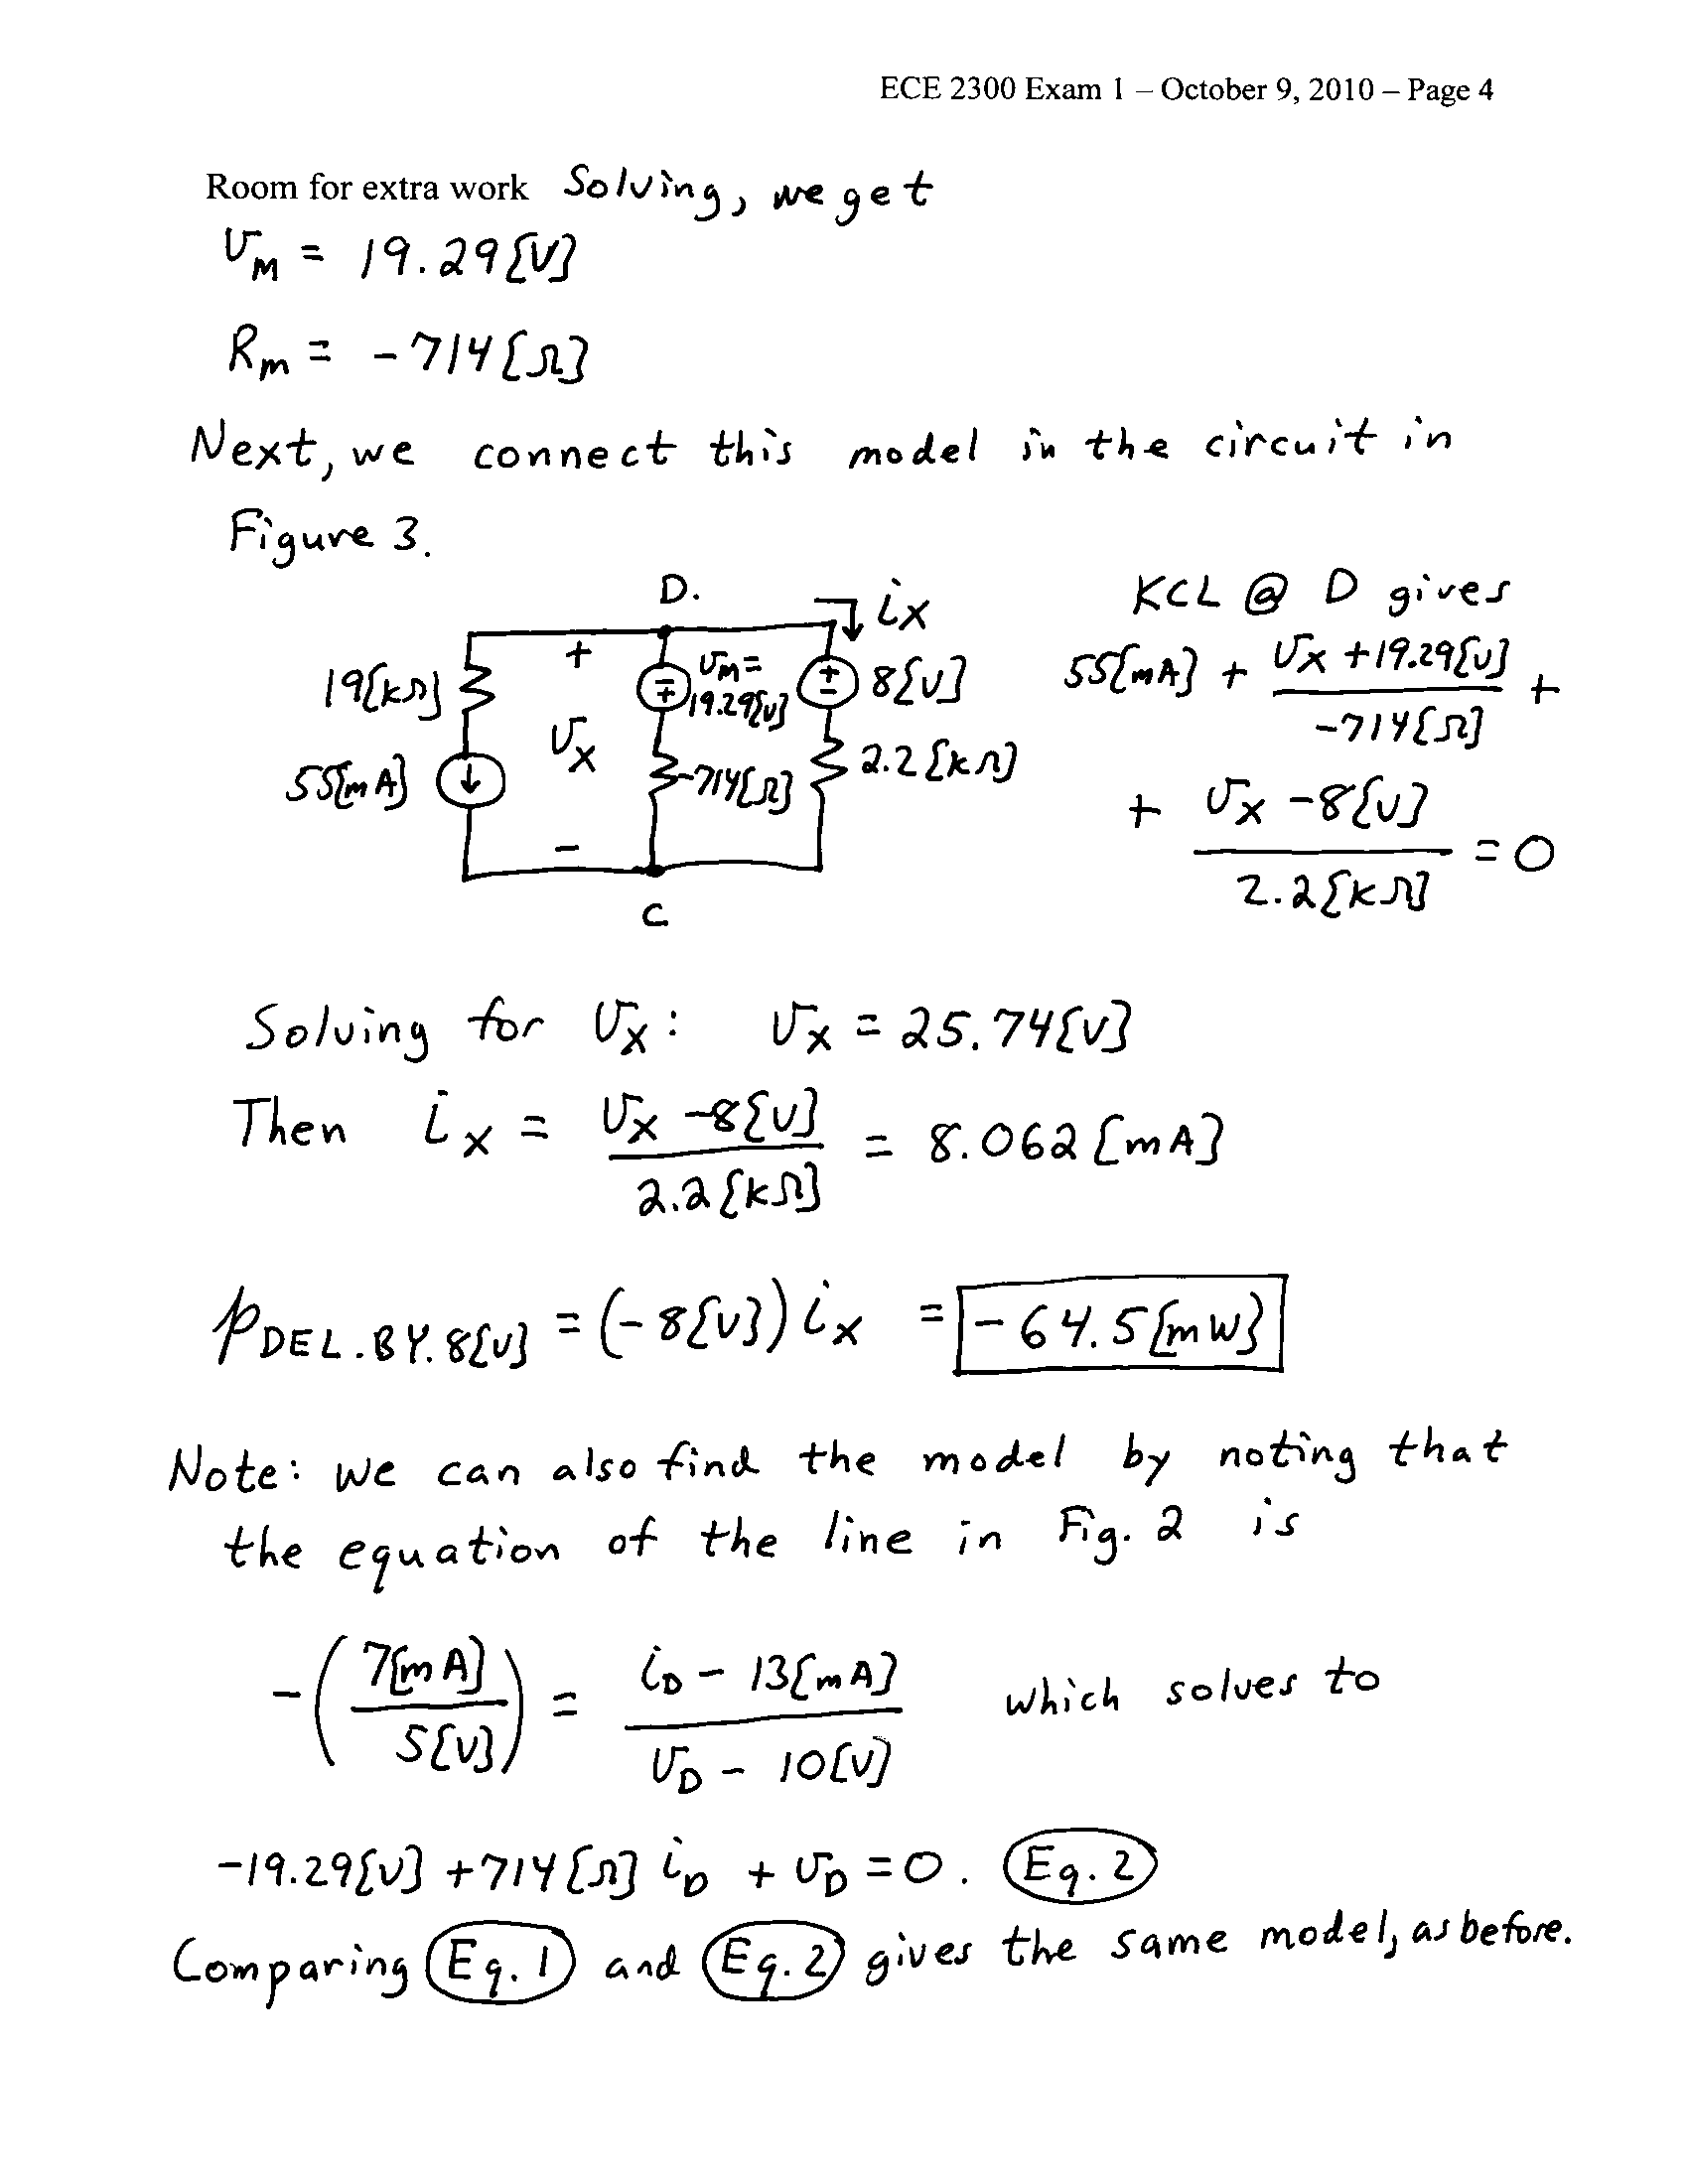 ECE 2300 Exam 1 – October 9, 2010 – Page 4
Room for extra work Solving, we get
v_M = 19.29[V]
R_m = -714[Ω]
Next, we connect this model in the circuit in
Figure 3.
D.
i_X
KCL @ D gives
+
v_M =
19.29[V]
8[V]
19[kΩ]
v_X
55[mA]
-714[Ω]
2.2[kΩ]
-
C
55[mA] + (v_X + 19.29[V]) / (-714[Ω]) +
+ (v_X - 8[V]) / (2.2[kΩ]) = 0
Solving for v_X: v_X = 25.74[V]
Then i_X = (v_X - 8[V]) / (2.2[kΩ]) = 8.062[mA]
p_DEL.BY.8[V] = (-8[V]) i_X = -64.5[mW]
Note: we can also find the model by noting that
the equation of the line in Fig. 2 is
-(7[mA] / 5[V]) = (i_D - 13[mA]) / (v_D - 10[V]) which solves to
-19.29[V] + 714[Ω] i_D + v_D = 0. Eq. 2
Comparing Eq. 1 and Eq. 2 gives the same model, as before.